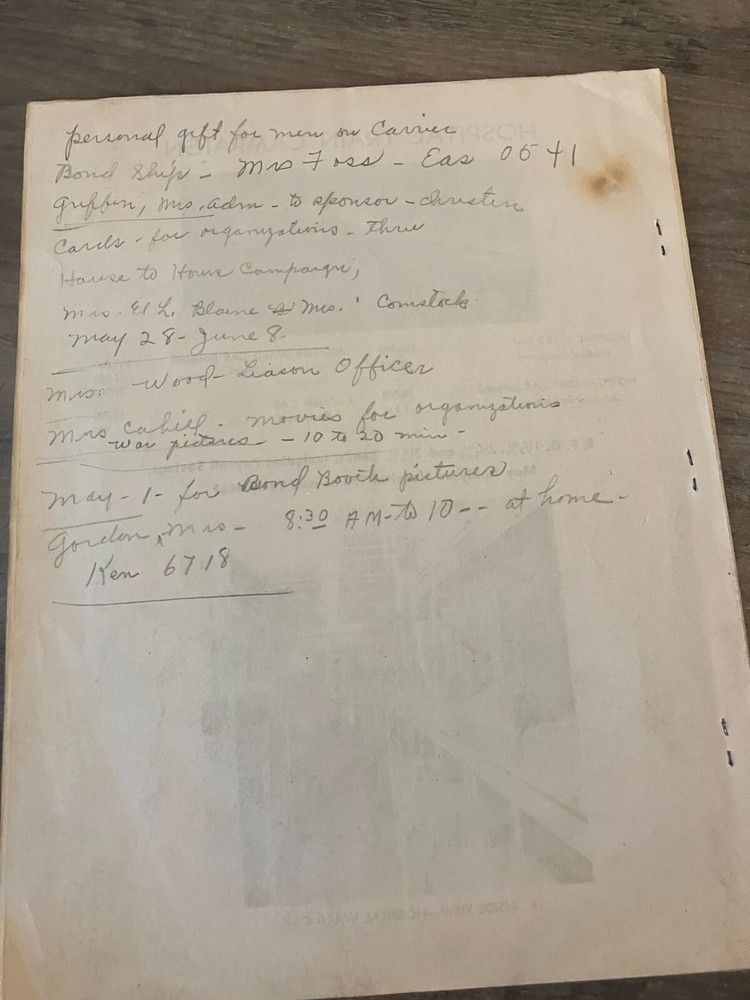 personal gift for men on Carrier
Bond Ship - Mrs Foss - Eas 0541
Griffin, Mrs. Adm - to sponsor - christen
Cards - for organizations - thru
House to House Campaign,
Mrs. El L. Blaine & Mrs. Comstock
May 28 - June 8.
Mrs. Wood - Liason Officer
Mrs Cahill - movies for organizations
war pictures - 10 to 20 min -
May - 1 - for Bond Booth pictures
Gordon, Mrs - 8:30 AM - to 10 -- at home -
Ken 6718
HOSPITAL TRAIN CAMPAIGN
INSIDE VIEW - HOSPITAL WARD CAR